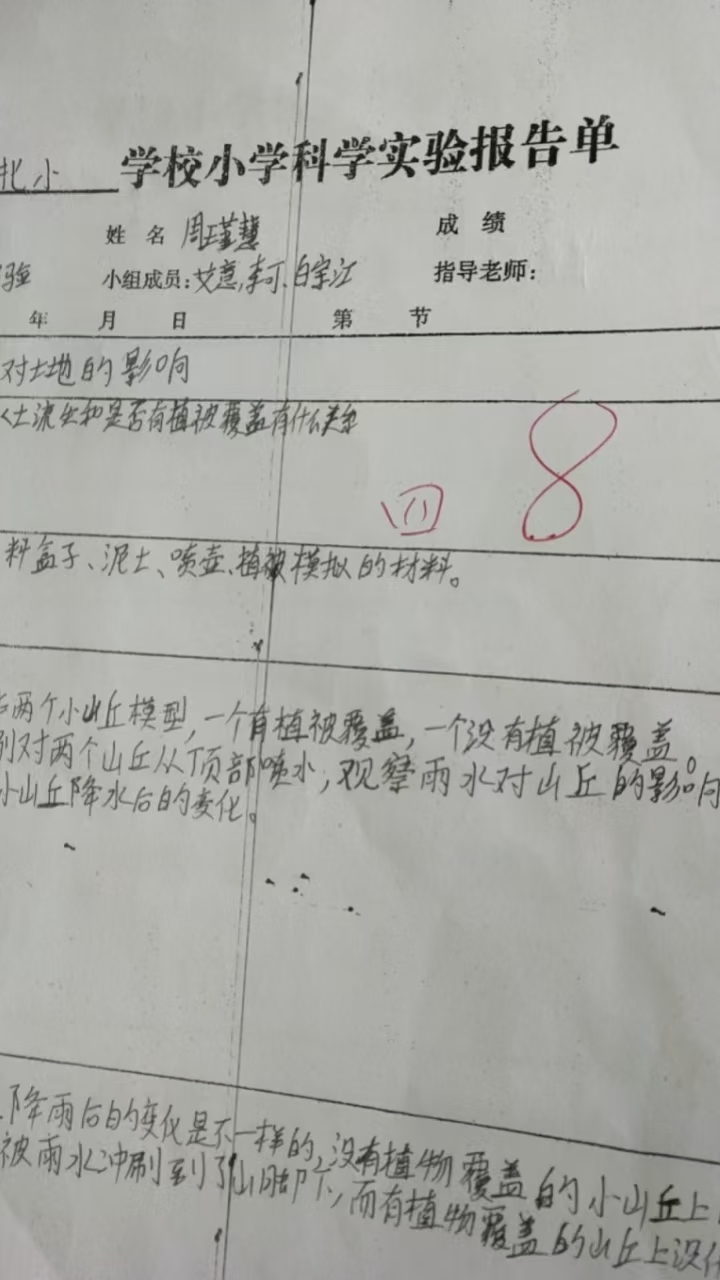 北小 学校小学科学实验报告单
姓 名 周瑾慧 成 绩
验 小组成员:艾意,李可、白宗江 指导老师:
年 月 日 第 节
对土地的影响
土流失和是否有植被覆盖有什么关系
四 8
料盒子、泥土、喷壶、植被模拟的材料。
两个小山丘模型,一个有植被覆盖,一个没有植被覆盖。
别对两个山丘从顶部喷水,观察雨水对山丘的影响
小山丘降水后的变化。
降雨后的变化是不一样的,没有植物覆盖的小山丘上
被雨水冲刷到了山脚下,而有植物覆盖的山丘上没